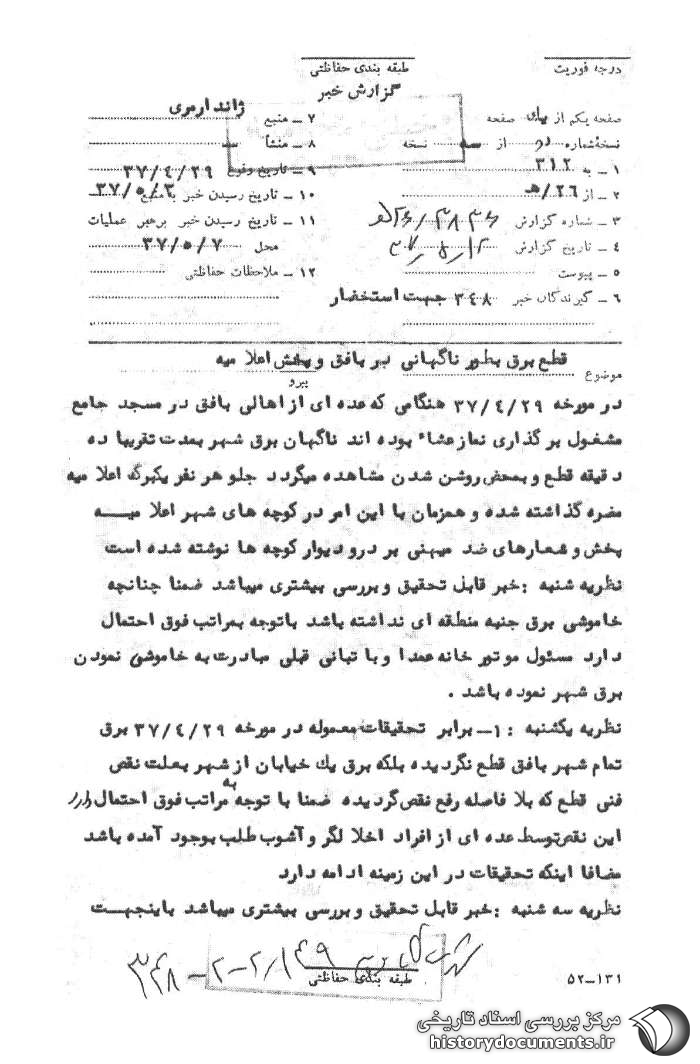 درجه فوریت
طبقه بندی حفاظتی
گزارش خبر
صفحه یکم از یک صفحه
نسخه شماره از سه نسخه
۱ ـ به ۳۱۲
۲ ـ از ۲۶/ه‍
۳ ـ شماره گزارش
۴ ـ تاریخ گزارش
۵ ـ پیوست
۶ ـ گیرندگان خبر ۳۴۸ جهت استحضار
۷ ـ منبع ژاندارمری
۸ ـ منشأ
۹ ـ تاریخ وقوع ۳۷/۴/۲۹
۱۰ ـ تاریخ رسیدن خبر بمنبع ۳۷/۵/۲
۱۱ ـ تاریخ رسیدن خبر برهبر عملیات
محل ۳۷/۵/۷
۱۲ ـ ملاحظات حفاظتی
موضوع قطع برق بطور ناگهانی در بافق و پخش اعلامیه
پیرو
در مورخه ۳۷/۴/۲۹ هنگامی که عده ای از اهالی بافق در مسجد جامع
مشغول برگذاری نماز عشاء بوده اند ناگهان برق شهر بمدت تقریبا ده
دقیقه قطع و بمحض روشن شدن مشاهده میگردد جلو هر نفر یکبرگ اعلامیه
مضره گذاشته شده و همزمان با این امر در کوچه های شهر اعلامیـــه
پخش و شعارهای ضد میهنی بر در و دیوار کوچه ها نوشته شده است
نظریه شنبه : خبر قابل تحقیق و بررسی بیشتری میباشد ضمنا چنانچه
خاموشی برق جنبه منطقه ای نداشته باشد باتوجه بمراتب فوق احتمال
دارد مسئول موتور خانه عمدا و با تبانی قبلی مبادرت به خاموشی نمودن
برق شهر نموده باشد .
نظریه یکشنبه : ۱ـ برابر تحقیقات معموله در مورخه ۳۷/۴/۲۹ برق
تمام شهر بافق قطع نگردیده بلکه برق یك خیابان از شهر بعلت نقص
فنی قطع که بلا فاصله رفع نقص گردیده ضمنا با توجه به مراتب فوق احتمال دارد
این نقص توسط عده ای از افراد اخلا لگر و آشوب طلب بوجود آمده باشد
مضافا اینکه تحقیقات در این زمینه ادامه دارد
نظریه سه شنبه : خبر قابل تحقیق و بررسی بیشتری میباشد باینجهـــت
۳۴۸ - ۲-۲/۱۴۹
طبقه بندی حفاظتی
۵۲ـ۱۳۱
مرکز بررسی اسناد تاریخی
historydocuments.ir